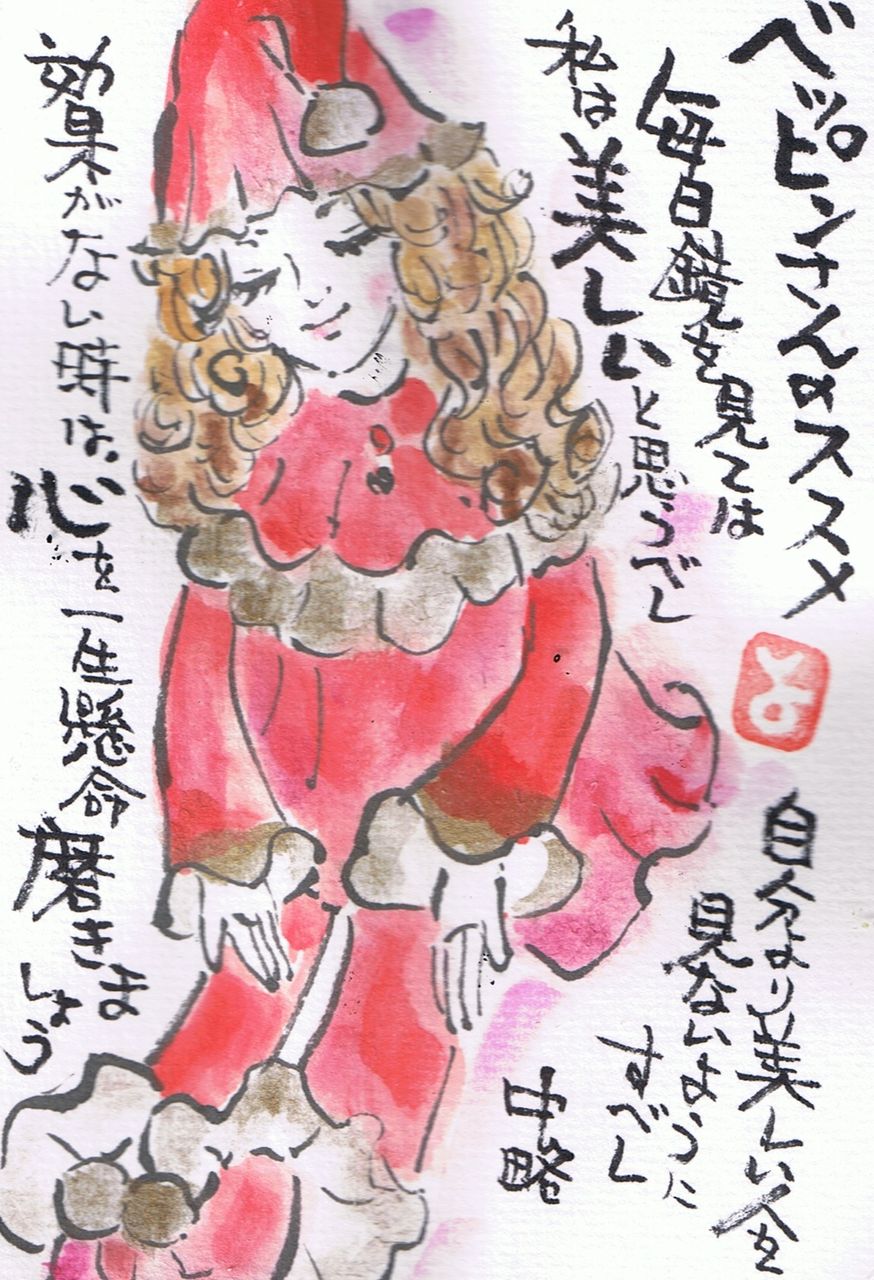 ベッピンさんのススメ
毎日鏡を見ては
私は美しいと思うべし
自分より美しい人を
見ないように
すべし
中略
効果がない時は、
心を一生懸命磨きま
しょう